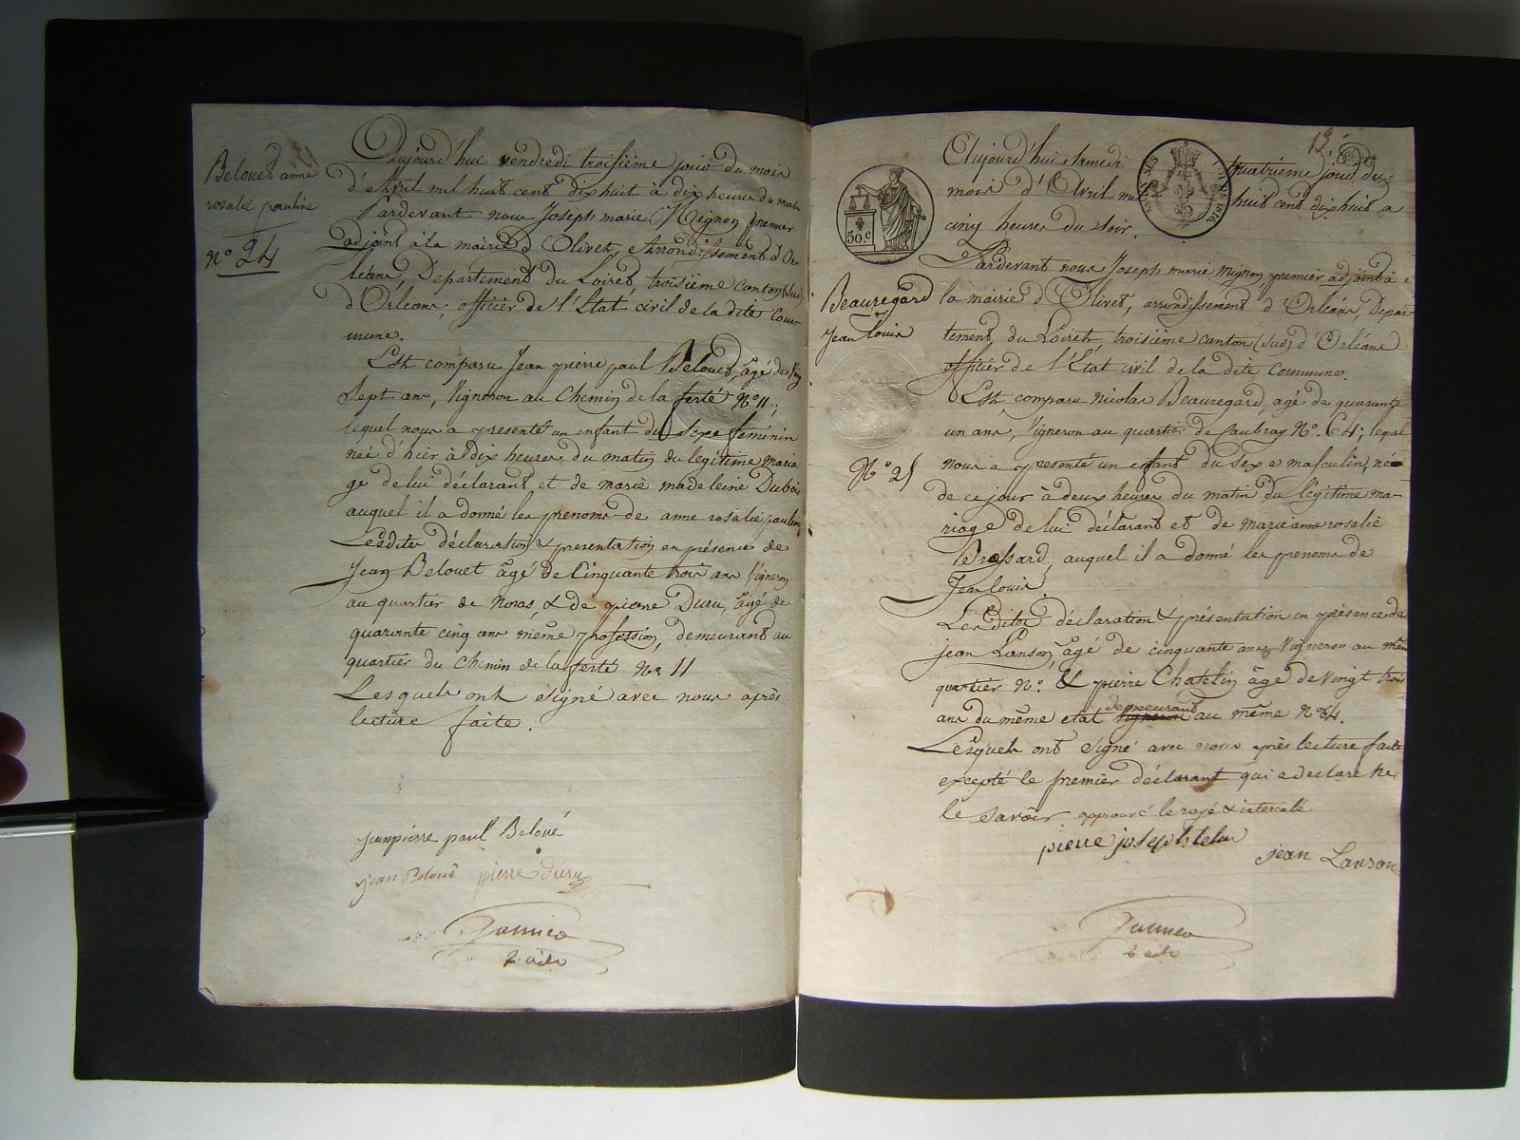 Belouet anne
rosalie pauline
n° 24
Aujourd'hui vendredi troisième jour du mois
d'Avril mil huit cent dix huit à dix heures du matin
Pardevant nous Joseph marie Mignon premier
adjoint à la mairie d'Olivet, Arrondissement d'Or-
léans, Departement du Loiret, troisième canton (Sud)
d'Orléans, officier de l'Etat civil de la dite Com-
mune.
Est comparu Jean pierre paul Belouet, âgé de
Sept ans, Vigneron au Chemin de la ferté N° 11,
lequel nous a presenté un enfant du Sexe feminin
née d'hier à dix heures du matin du legitime maria
ge de lui déclarant et de marie madeleine Dubois
auquel il a donné les prenoms de anne rosalie pauline
Lesdites déclaration & presentation en présence de
Jean Belouet âgé de Cinquante trois ans Vigneron
au quartier de & de pierre Duru, âgé de
quarante cinq ans même profession, demeurant au
quartier du Chemin de la ferté No 11
Lesquels ont signé avec nous après
lecture faite.
jean pierre paul Beloué
jean Beloué pierre duru
13.
Aujourd'hui Samedi quatrième jour du
mois d'Avril mil huit cent dix huit a
cinq heures du soir.
50.c
Pardevant nous Joseph marie Mignon premier adjoint à
la mairie d'Olivet, arrondissement d'Orléans, Depar-
tement du Loiret, troisième canton (Sud) d'Orléans
officier de l'État civil de la dite Commune.
Beauregard
jean louis
N° 25
Est comparu nicolas Beauregard, agé de quarante
un ans, Vigneron au quartier de Caubray N°. 64; lequel
nous a presenté un enfant du Sexe masculin, né
de ce jour à deux heures du matin du légitime ma-
riage de lui déclarant et de marie anne rosalie
Brossard, auquel il a donné les prenoms de
Jean louis.
Lesdites déclaration & présentation en présence de
jean Lanson, âgé de cinquante ans, Vigneron au même
quartier N°. & pierre Chatelin âgé de vingt trois
ans du même etat vigneron demeurant au même N° 64.
Lesquels ont signé avec nous après lecture faite
excepté le premier déclarant qui a declaré ne
le savoir approuvé le rayé & intercalé
pierre
jean Lanson